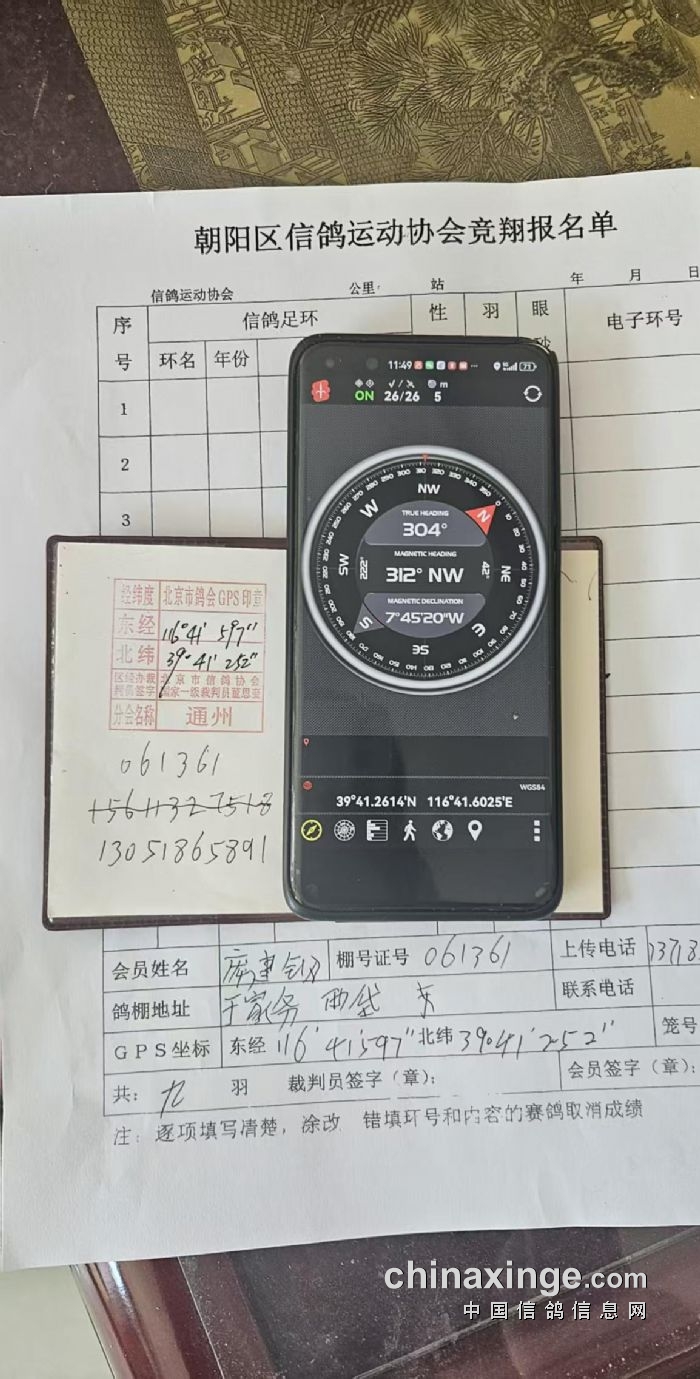 朝阳区信鸽运动协会竞翔报名单
信鸽运动协会 公里 站 年 月 日
序号 信鸽足环 性 羽 眼 电子环号
环名 年份
1
2
3
11:49 73
ON 26/26 5 m
NW
W N
TRUE HEADING
304°
MAGNETIC HEADING
SW 222° 312° NW 42° NE
MAGNETIC DECLINATION
7°45'20"W
S E
SE
WGS84
39°41.2614'N 116°41.6025'E
经纬度 北京市鸽会GPS印章
东经 116°41' 597"
北纬 39°41' 252"
区经办裁判员签字 北京市信鸽协会国家一级裁判员
分会名称 通州
061361
15611327518
13051865891
会员姓名 棚号证号 061361 上传电话 13718
鸽棚地址 于家务 西 联系电话
GPS坐标 东经 116°41'597" 北纬 39°41'252" 笼号
共: 九 羽 裁判员签字(章): 会员签字(章):
注: 逐项填写清楚, 涂改 错填环号和内容的赛鸽取消成绩
chinaxinge.com
中国信鸽信息网